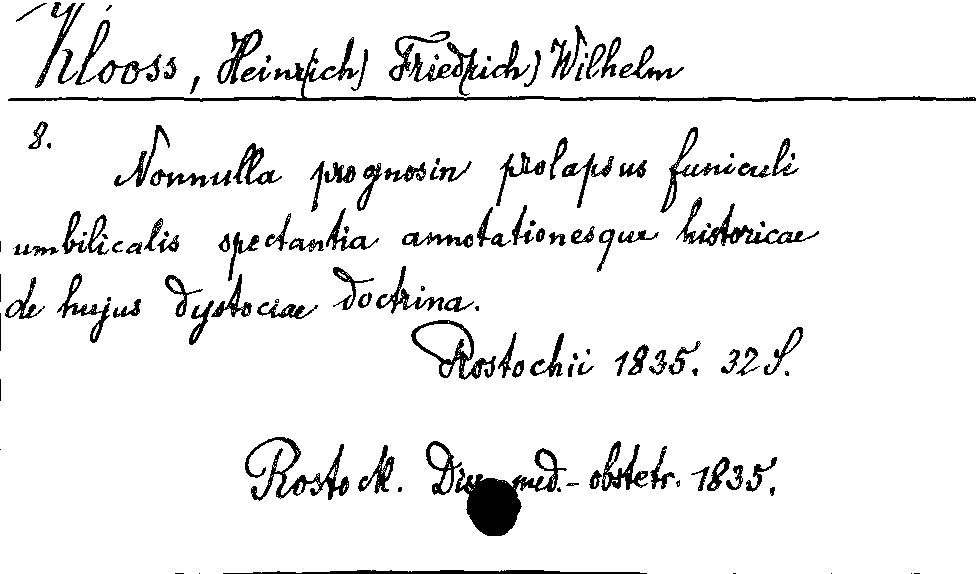 Klooss, Hein(rich) Fried(rich) Wilhelm
8.
Nonnulla prognosin prolapsus funiculi
umbilicalis spectantia annotationesque historicae
de hujus dystociae doctrina.
Rostochii 1835. 32 S.
Rostock. Diss. med.-obstetr. 1835.